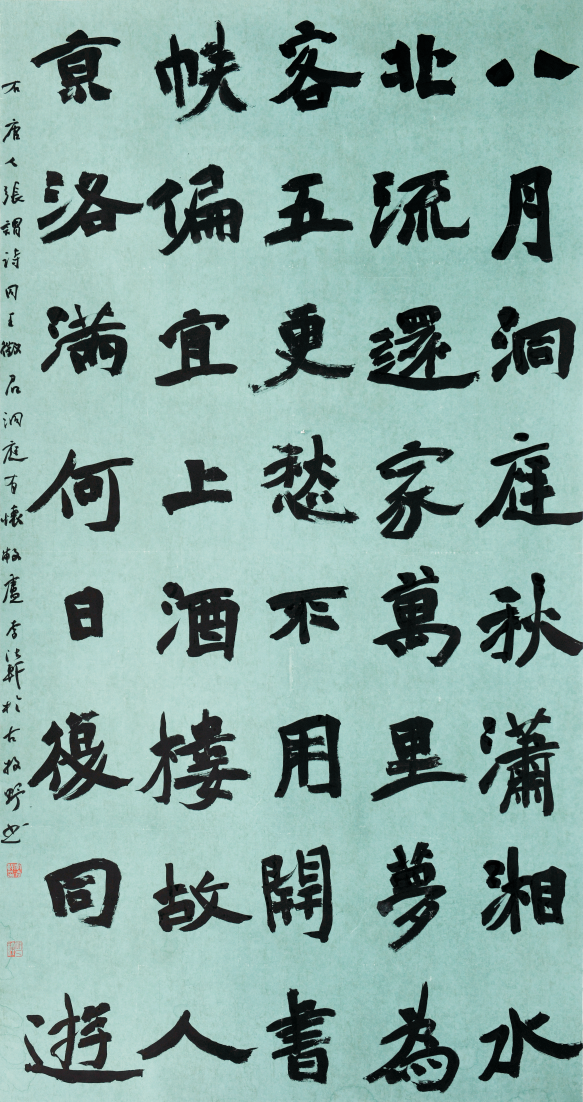 八月洞庭秋瀟湘水
北流還家萬里夢為
客五更愁不用開書
帙偏宜上酒樓故人
亰洛滿何日復同遊
右唐人張謂詩同王徵君洞庭有懷 李 於古牧野書